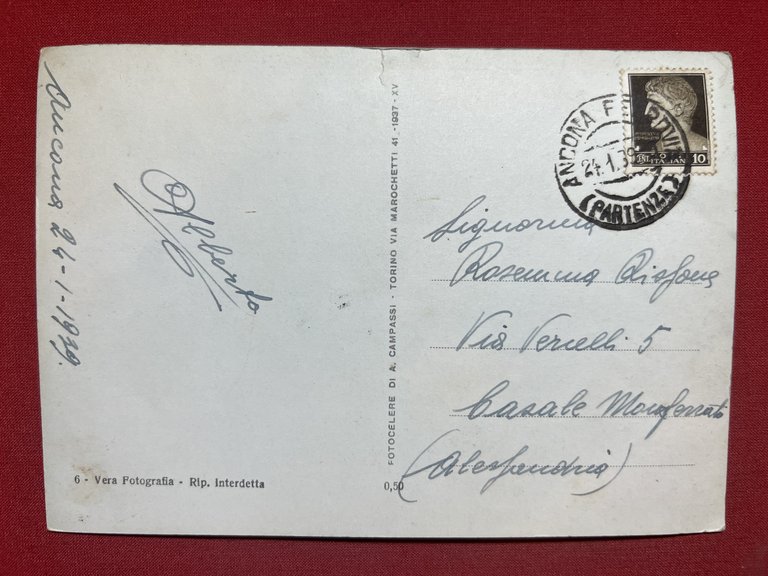 Ancona 24-1-1939.
Alberto
6 - Vera Fotografia - Rip. Interdetta
FOTOCELERE DI A. CAMPASSI - TORINO VIA MAROCHETTI 41 -1937-XV
0,50
ANCONA
24.1.39
(PARTENZE)
ITALIAN 10
Signorina
Rosemma
Via Vercelli 5
Casale Monferrato
(Alessandria)